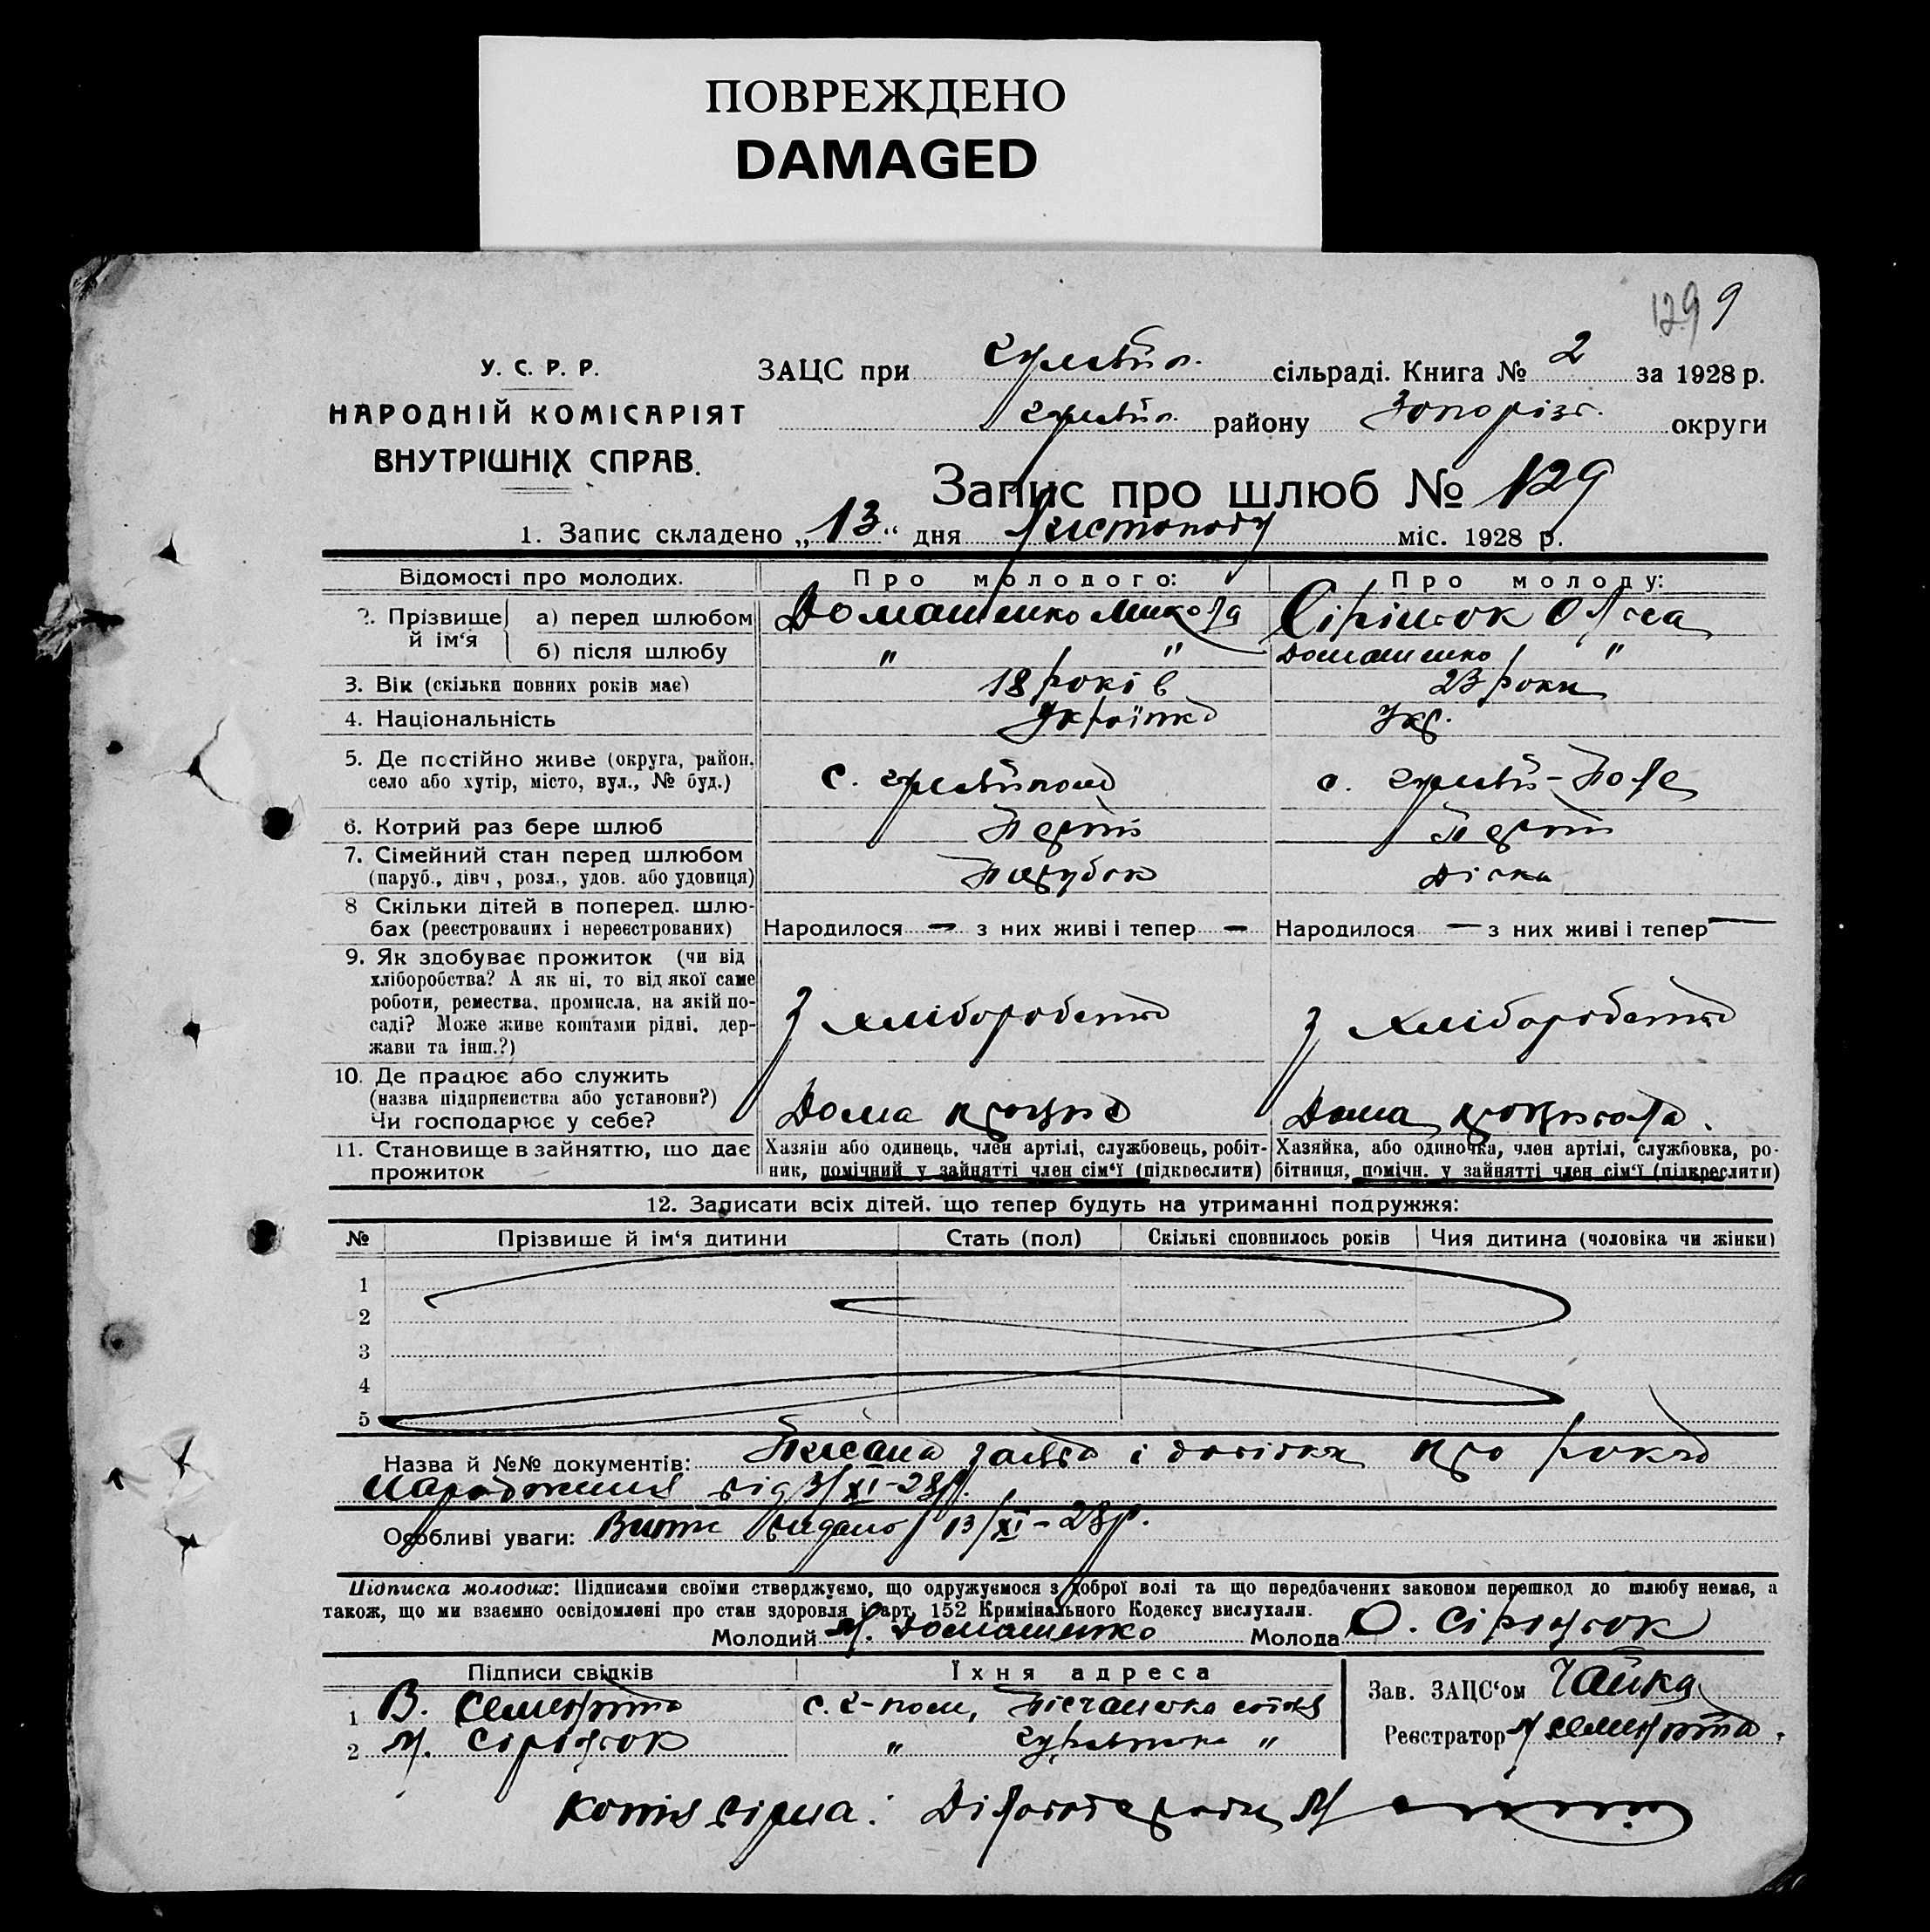 ПОВРЕЖДЕНО
DAMAGED
129 9
У. С. Р. Р.
НАРОДНІЙ КОМІСАРІЯТ
ВНУТРІШНІХ СПРАВ.
ЗАЦС при Гуляйп. сільраді. Книга № 2 за 1928 р.
Гуляйп. району Запоріз. округи
Запис про шлюб № 129
1. Запис складено „13“ дня Листопаду міс. 1928 р.
Відомості про молодих. Про молодого: Про молоду:
2. Прізвище й ім‘я
а) перед шлюбом Домашенко Микола Сірінок Олєна
б) після шлюбу " " Домашенко "
3. Вік (скільки повних років має) 18 років 23 роки
4. Національність Українец Укр.
5. Де постійно живе (округа, район,
село або хутір, місто, вул., № буд.) с. Гуляйполе с. Гуляй-Поле
6. Котрий раз бере шлюб Перший Перший
7. Сімейний стан перед шлюбом
(паруб., дівч., розл., удов. або удовиця) Парубок Дівка
8 Скільки дітей в поперед. шлю-
бах (реєстрованих і нереєстрованих) Народилося — з них живі і тепер — Народилося — з них живі і тепер —
9. Як здобуває прожиток (чи від
хліборобства? А як ні, то від якої саме
роботи, ремества, промисла, на якій по-
саді? Може живе коштами рідні, дер-
жави та інш.?) З хліборобства З хліборобства
10. Де працює або служить
(назва підприємства або установи?)
Чи господарює у себе? Дома працює Дома працювала.
11. Становище в зайняттю, що дає
прожиток
Хазяїн або одинець, член артілі, службовець, робіт-
ник, помічний у зайнятті член сім‘ї (підкреслити)
Хазяйка, або одиночка, член артілі, службовка, ро-
бітниця, помічн. у зайнятті член сім‘ї (підкреслити)
12. Записати всіх дітей, що тепер будуть на утриманні подружжя:
№ Прізвище й ім‘я дитини Стать (пол) Скількі сповнилось років Чия дитина (чоловіка чи жінки)
1
2
3
4
5
Назва й №№ документів: Писана заява і довідка про рокад
Народження від 3/XI-28р.
Особливі уваги: Витяг видано 13/XI-28р.
Підписка молодих: Підписами своїми стверджуємо, що одружуємося з доброї волі та що передбачених законом перешкод до шлюбу немає, а
також, що ми взаємно освідомлені про стан здоровля і арт. 152 Кримінального Кодексу вислухали.
Молодий М. Домашенко Молода О. Сірінок
Підписи свідків Їхня адреса
1 В. Семенюта с. Г-поле, Пісчанська сотня
2 М. Сірінок " "
Зав. ЗАЦС‘ом Чайка
Реєстратор Семенюта.
Копія вірна: Діловод